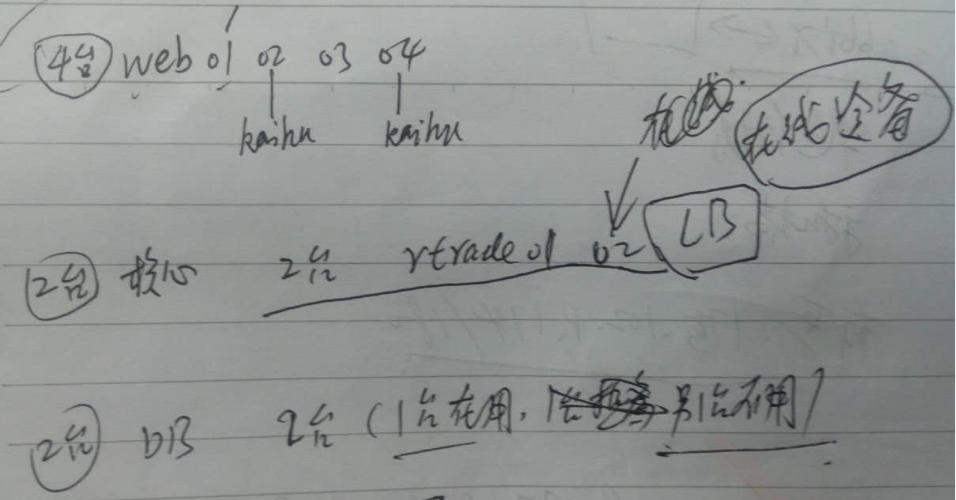 4台 web 01 02 03 04
kaihu kaihu
在线冷备
2台 核心 2台 rtrade 01 02 LB
2台 DB 2台 (1台在用, 另1台不用)